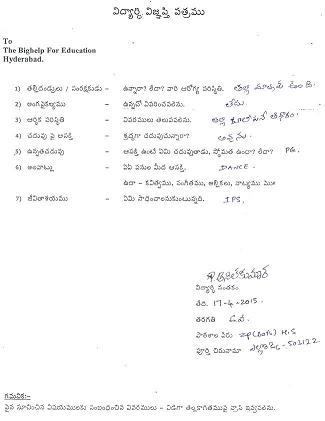 విద్యార్థి విజ్ఞప్తి పత్రము
To
The Bighelp For Education
Hyderabad.
1) తల్లిదండ్రులు / సంరక్షకుడు - ఉన్నారా? లేదా? వారి ఆరోగ్య పరిస్థితి. తల్లి మాత్రమే ఉంది.
2) అంగవైకల్యము - ఉన్నచో వివరించవలెను. లేదు.
3) ఆర్థిక పరిస్థితి - వివరములు తెలుపవలెను. తల్లి కూలీపనే ఆధారం.
4) చదువు పై ఆసక్తి - శ్రద్ధగా చదువుచున్నారా?
5) ఉన్నతచదువు - ఆసక్తి ఉంటే ఏమి చదువుతాడు, స్తోమత ఉందా? లేదా? PG.
6) అలవాట్లు - ఏఏ పనుల మీద ఆసక్తి. DANCE.
ఉదా - కవిత్వము, సంగీతము, ఆల్బికలు, నాట్యము
7) జీవితాశయము - ఏమి సాధించాలనుకుంటున్నది. IPS.
విద్యార్థి సంతకం
తేది: 17-4-2015
తరగతి
పాఠశాల పేరు ZP (Boys) H.S
పూర్తి చిరునామా 502122
గమనిక:-
పైన సూచించిన విషయములకు సంబంధించిన వివరములు - విడిగా తెల్లకాగితముపై వ్రాసి ఇవ్వవలెను.